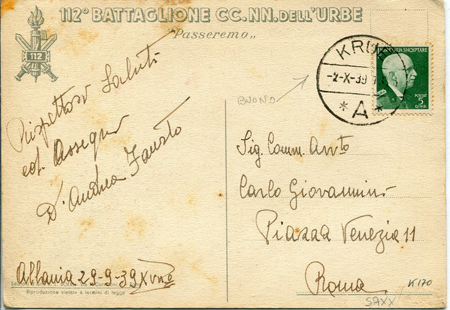 112° BATTAGLIONE CC.NN. DELL'URBE
"Passeremo"
112
KRU
-2-X-39
*A*
SHQIPTARE
5
BUONO
Rispettosi Saluti
ed Ossequi
D'Andrea Fausto
Sig. Comm. Avv.to
Carlo Giovannini
Piazza Venezia 11
Roma
Albania 29-9-39 XVII°
Riproduzione vietata a termini di legge
K170
SAXX